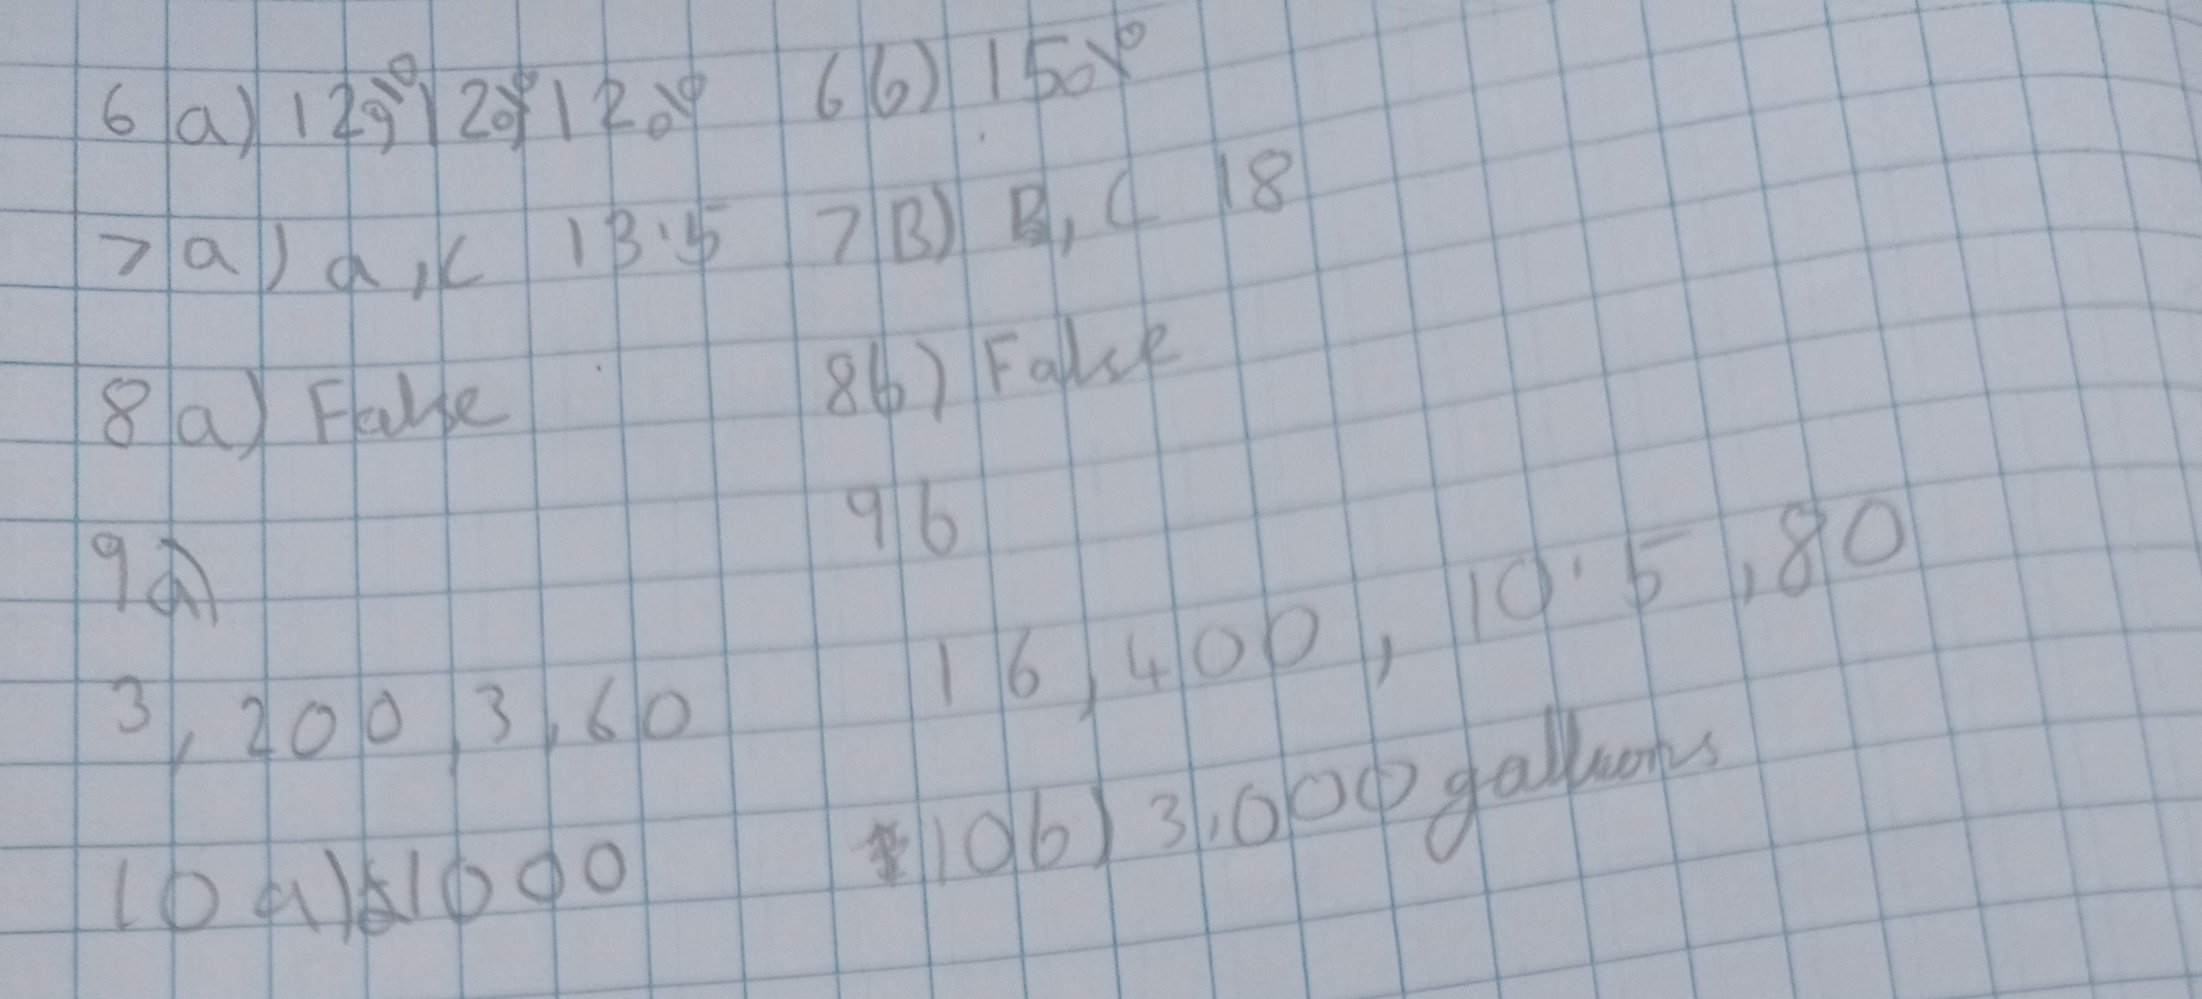 6a) 120° 120° 120° 6b) 150°
7a) a, c 13.5 7B) B, C 18
8a) False 8b) False
9a) 9b
3, 200, 3, 60 16, 400, 10.5, 80
10a) 1000 10b) 3,000 gallons